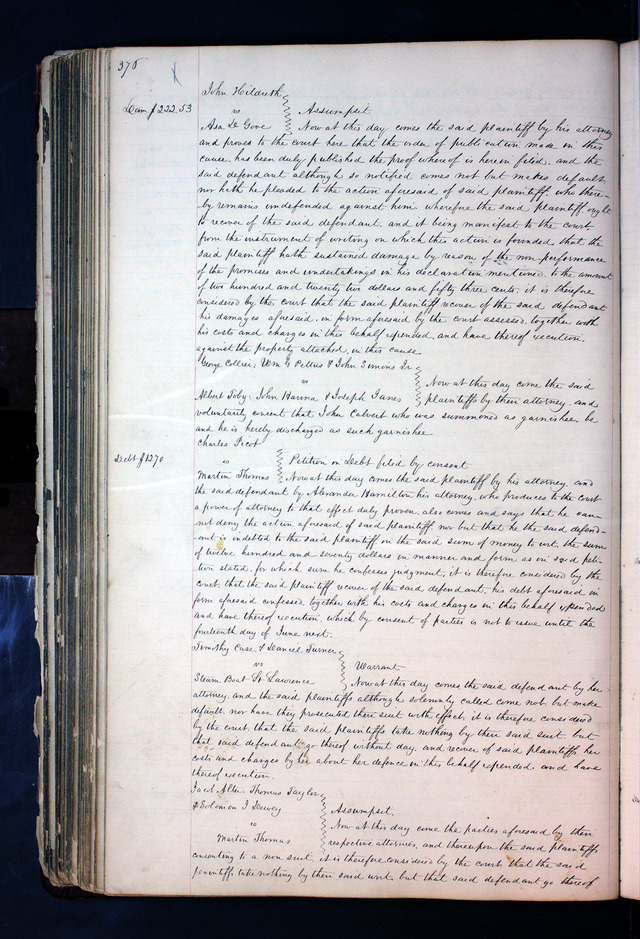 376
John Hildreth
vs Assumpsit
Dam $222.53
Asa De Gove Now at this day comes the said plaintiff by his attorney
and proves to the court here that the order of publication made in this
cause has been duly published the proof whereof is herein filed, and the
said defendant although so notified comes not but makes default
nor hath he pleaded to the action aforesaid of said plaintiff, who there-
-by remains undefended against him wherefore the said plaintiff ought
to recover of the said defendant, and it being manifest to the court
from the instrument of writing on which this action is founded that the
said plaintiff hath sustained damage by reason of the non performance
of the promises and undertakings in his declaration mentioned to the amount
of two hundred and twenty two dollars and fifty three cents, it is therefore
considered by the court that the said plaintiff recover of the said defendant
his damages aforesaid, in form aforesaid by the court assessed, together with
his costs and charges in this behalf expended, and have thereof execution,
against the property attached, in this cause.
George Collier, Wm G Pettus & John Simons Jr
vs Now at this day come the said
Albert Toby, John Hanna & Joseph Janes plaintiffs by their attorney, and
voluntarily consent that John Calvert who was summoned as garnishee, be
and he is hereby discharged as such garnishee.
Charles Picot
Debt $1270
vs Petition in Debt filed by consent
Martin Thomas Now at this day comes the said plaintiff by his attorney, and
the said defendant by Alexander Hamilton his attorney, who produces to the court
a power of attorney to that effect duly proven, also comes and says that he can-
not deny the action aforesaid of said plaintiff, nor but that he the said defend-
-ant is indebted to the said plaintiff in the said sum of money to wit, the sum
of twelve hundred and seventy dollars in manner and form as in said peti-
tion stated, for which sum he confesses judgment, it is therefore considered by the
court, that the said plaintiff recover of the said defendant, his debt aforesaid in
form aforesaid confessed, together with his costs and charges in this behalf expended
and have thereof execution, which by consent of parties is not to issue until the
fourteenth day of June next.
Timothy Case & Daniel Turner
vs Warrant
Steam Boat St Lawrence Now at this day comes the said defendant by her
attorney, and the said plaintiffs although solemnly called come not, but make
default, nor have they prosecuted there suit with effect, it is therefore considered
by the court, that the said plaintiffs take nothing by there said suit, but
that said defendant go thereof without day, and recover of said plaintiffs her
costs and charges by her about her defence in this behalf expended, and have
thereof execution.
Jacob Alter Thomas Taylor
& Solomon J Dewey Assumpsit.
vs Now at this day come the parties aforesaid by their
Martin Thomas respective attornies, and thereupon the said plaintiffs
consenting to a non suit, it is therefore considered by the court, that the said
plaintiffs take nothing by there said writ, but that said defendant go thereof